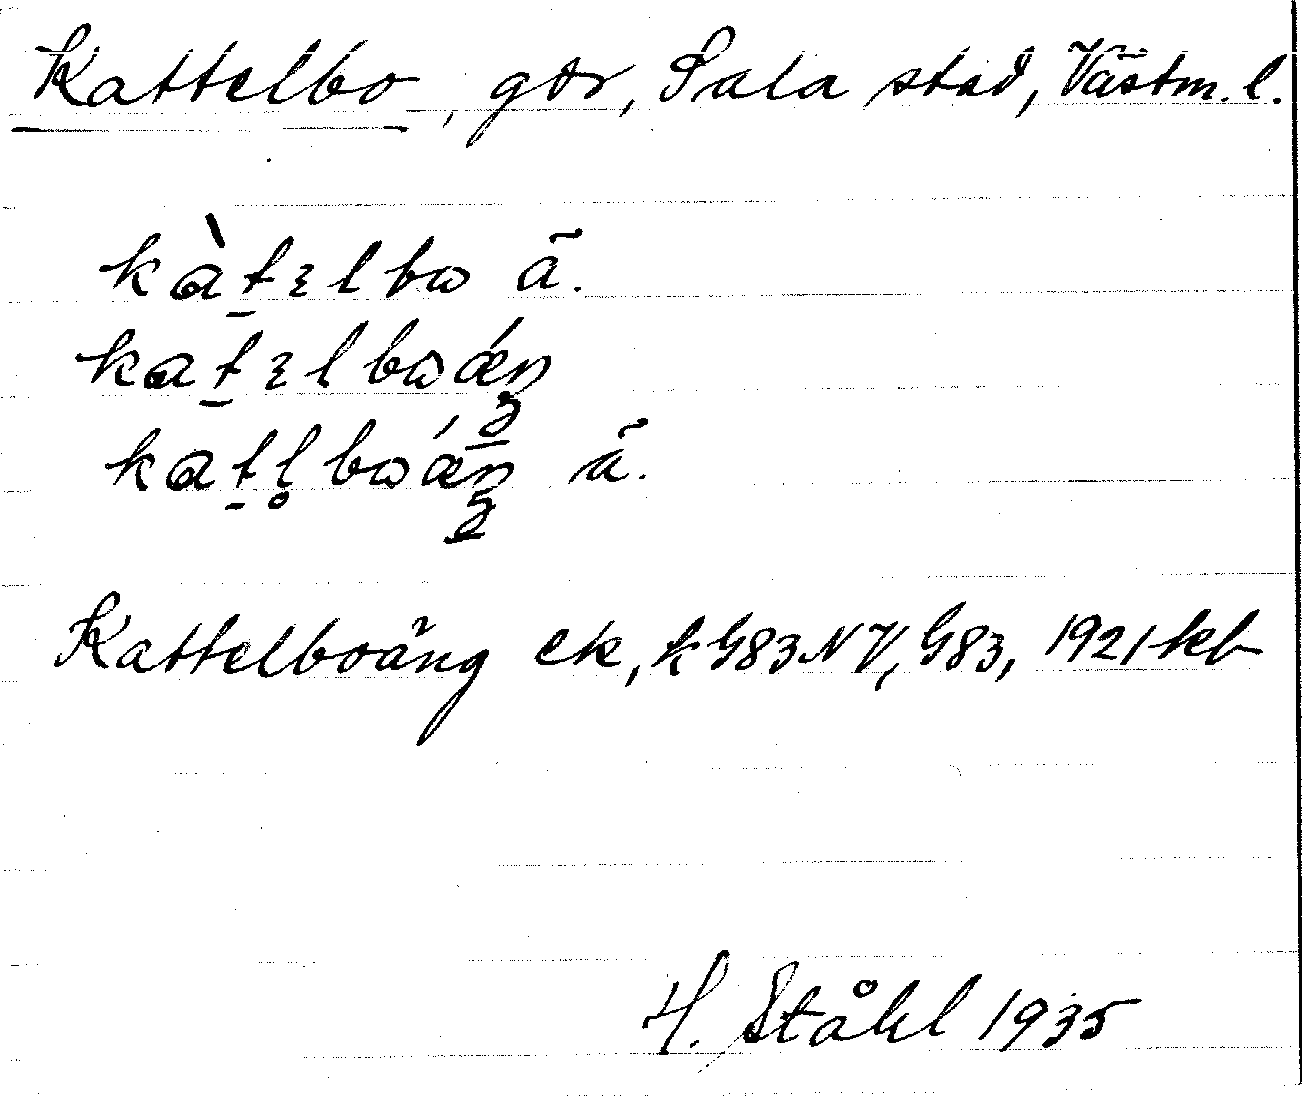 Kattelbo, gdr, Sala stad, Västm. l.
kàt̠ɛlbω ã.
kat̠ɛlbωǽŋ
kat̠l̥bωǽŋ ã.
Kattelboäng ek, k G83NV, G83, 1921 kb
H. Ståhl 1935